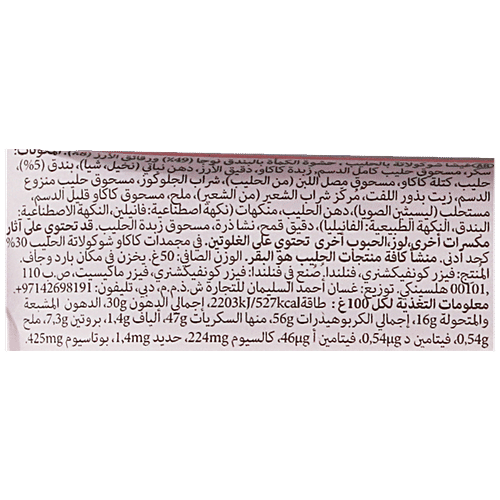 بالحليب، حشوة الكمأة بالبندق نوجا (49%) ورقائق الأرز (8%). المكونات:
سكر، مسحوق حليب كامل الدسم، زبدة كاكاو، دقيق الأرز، دهن نباتي (نخيل، شيا)، بندق (5%)،
حليب، كتلة كاكاو، مسحوق مصل اللبن (من الحليب)، شراب الجلوكوز، مسحوق حليب منزوع
الدسم، زيت بذور اللفت، مركز شراب الشعير (من الشعير)، ملح، مسحوق كاكاو قليل الدسم،
مستحلب (ليسيثين الصويا)، دهن الحليب، منكهات (نكهة اصطناعية: فانيلين، النكهة الاصطناعية:
البندق، النكهة الطبيعية: الفانيليا)، دقيق قمح، نشا ذرة، مسحوق زبدة الحليب. قد تحتوي على آثار
مكسرات أخرى، لوز، الحبوب أخرى تحتوي على الغلوتين. في مجمدات كاكاو شوكولاتة الحليب 30%
كحد أدنى. منشأ كافة منتجات الحليب هو البقر. الوزن الصافي: 50غ. يخزن في مكان بارد وجاف.
المنتج: فيزر كونفيكشنري، فنلندا. صنع في: فنلندا: فيزر كونفيكشنري، فيزر ماكيسيت، ص.ب 110
00101، هلسينكي. توزيع: غسان أحمد السليمان للتجارة ش.ذ.م.م، دبي، تليفون: 97142698191+.
معلومات التغذية لكل 100غ: طاقة 2203kJ/527kcal، إجمالي الدهون 30g، الدهون المشبعة
والمتحولة 16g، إجمالي الكربوهيدرات 56g، منها السكريات 47g، ألياف 1,4g، بروتين 7,3g، ملح
0,54g، فيتامين د 0,54µg، فيتامين أ 46µg، كالسيوم 224mg، حديد 1,4mg، بوتاسيوم 425mg.